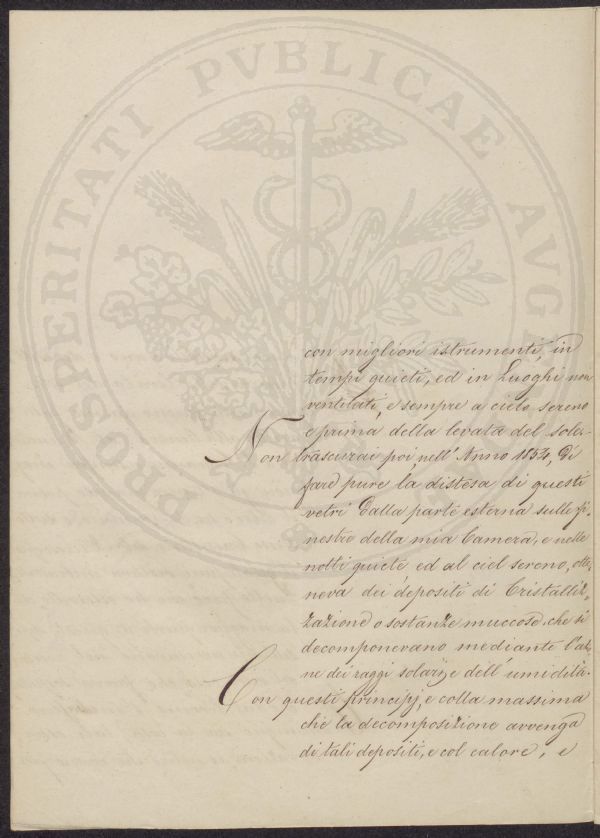 PROSPERITATI PVBLICAE AVG
con migliori istrumenti, in
tempi quieti, ed in Luoghi non
ventilati, e sempre a cielo sereno
e prima della levata del sole.
Non trascurai poi, nell' Anno 1854, di
fare pure la distesa di questi
vetri dalla parte esterna sulle fi-
nestre della mia Camera, e nelle
notti quiete ed al ciel sereno, otte-
neva dei depositi di Cristalliz-
zazione o sostanze muccose, che si
decomponevano mediante l'azio-
ne dei raggi solari, e dell' umidità.
Con questi principj, e colla massima
che la decomposizione avvenga
di tali depositi, e col calore, e